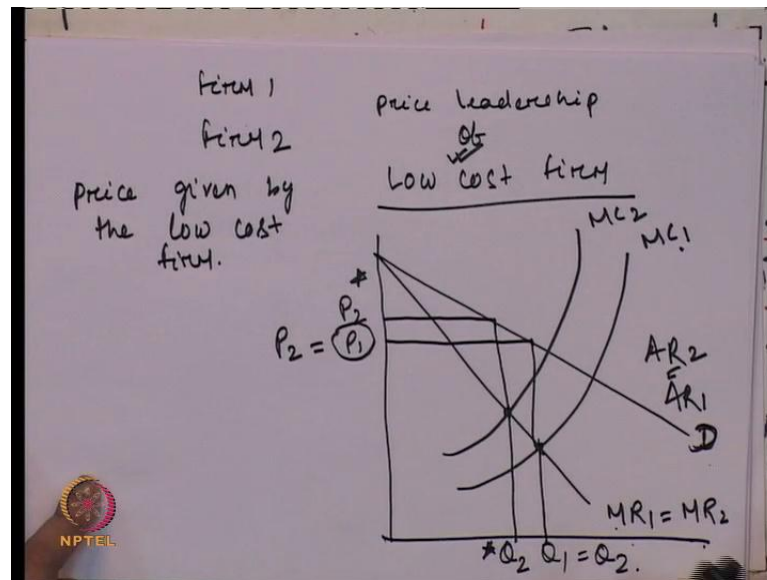 Firm 1
Firm 2
price given by
the low cost
firm.
price leadership
of
Low cost firm
MC2
MC1
*
P2
P2 = P1
AR2
=
AR1
D
MR1 = MR2
*Q2 Q1 = Q2.
NPTEL